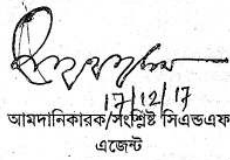 17/12/17
আমদানিকারক/সংশ্লিষ্ট সিএন্ডএফ
এজেন্ট